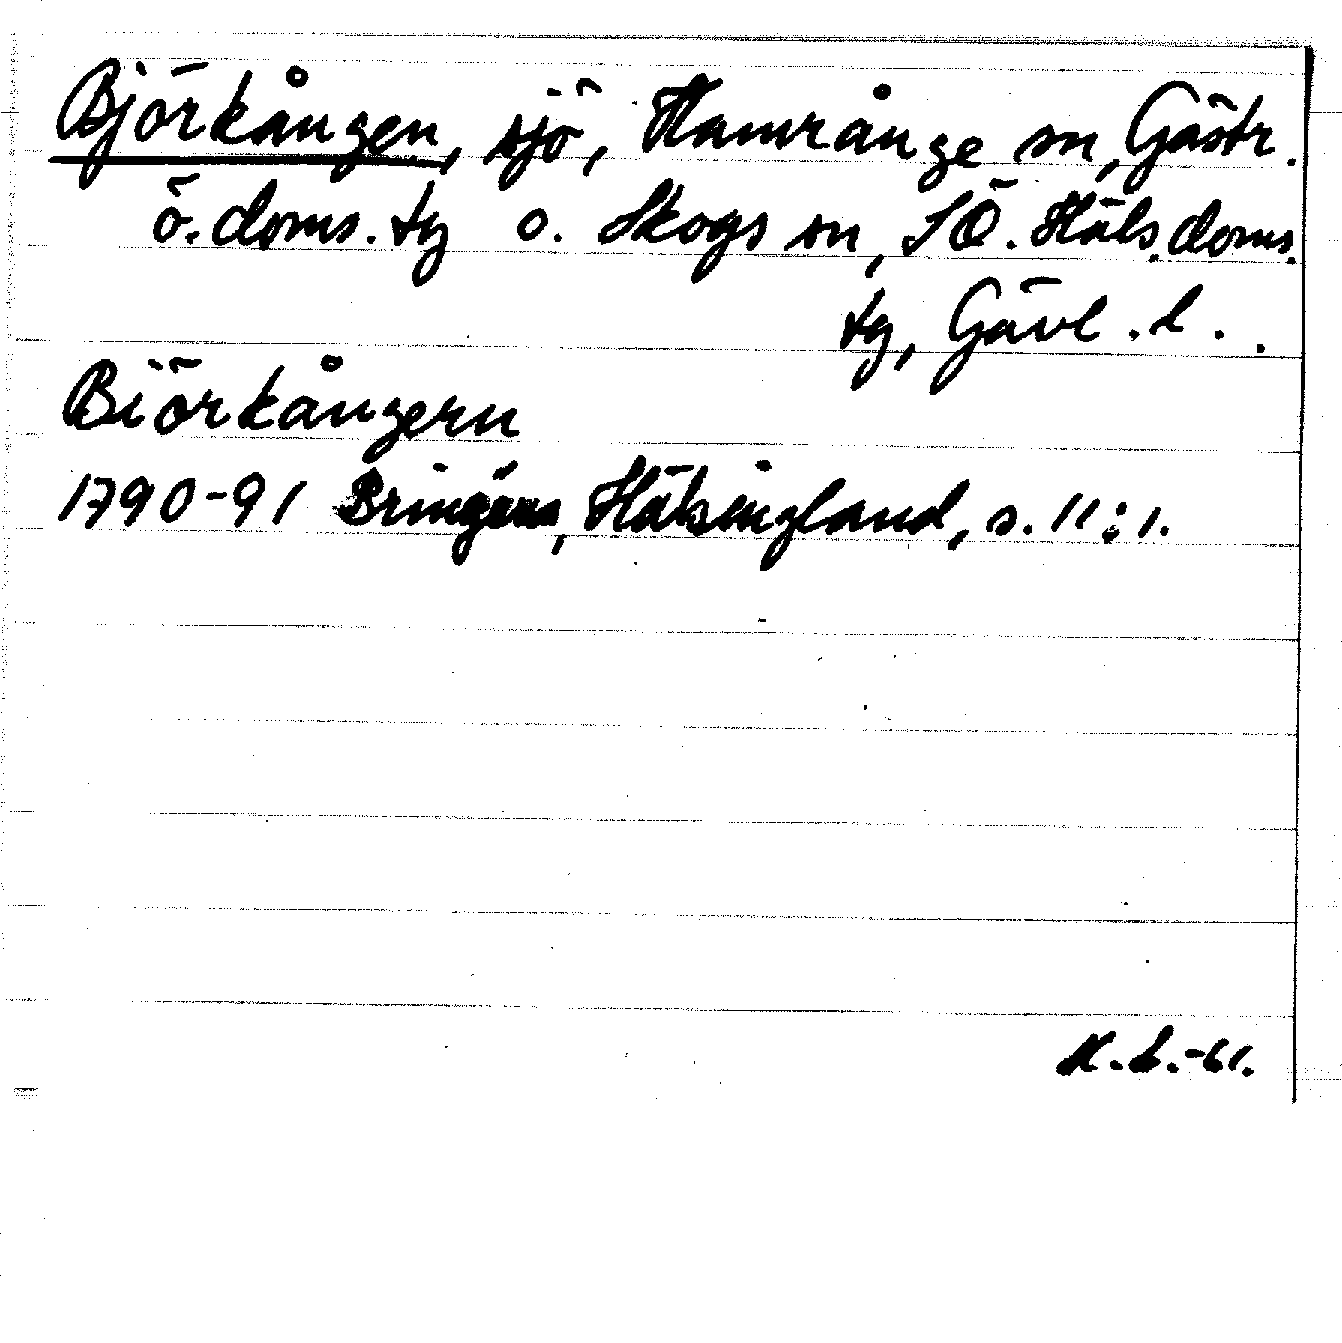 Björkången, sjö, Hamrånge sn, Gästr.
ö. doms. tg o. Skogs sn, SÖ. Häls. doms.
tg, Gävl. l. .
Biörkångern
1790-91 Bringéus, Hälsingland, s. 11:1.
K.L.-61.